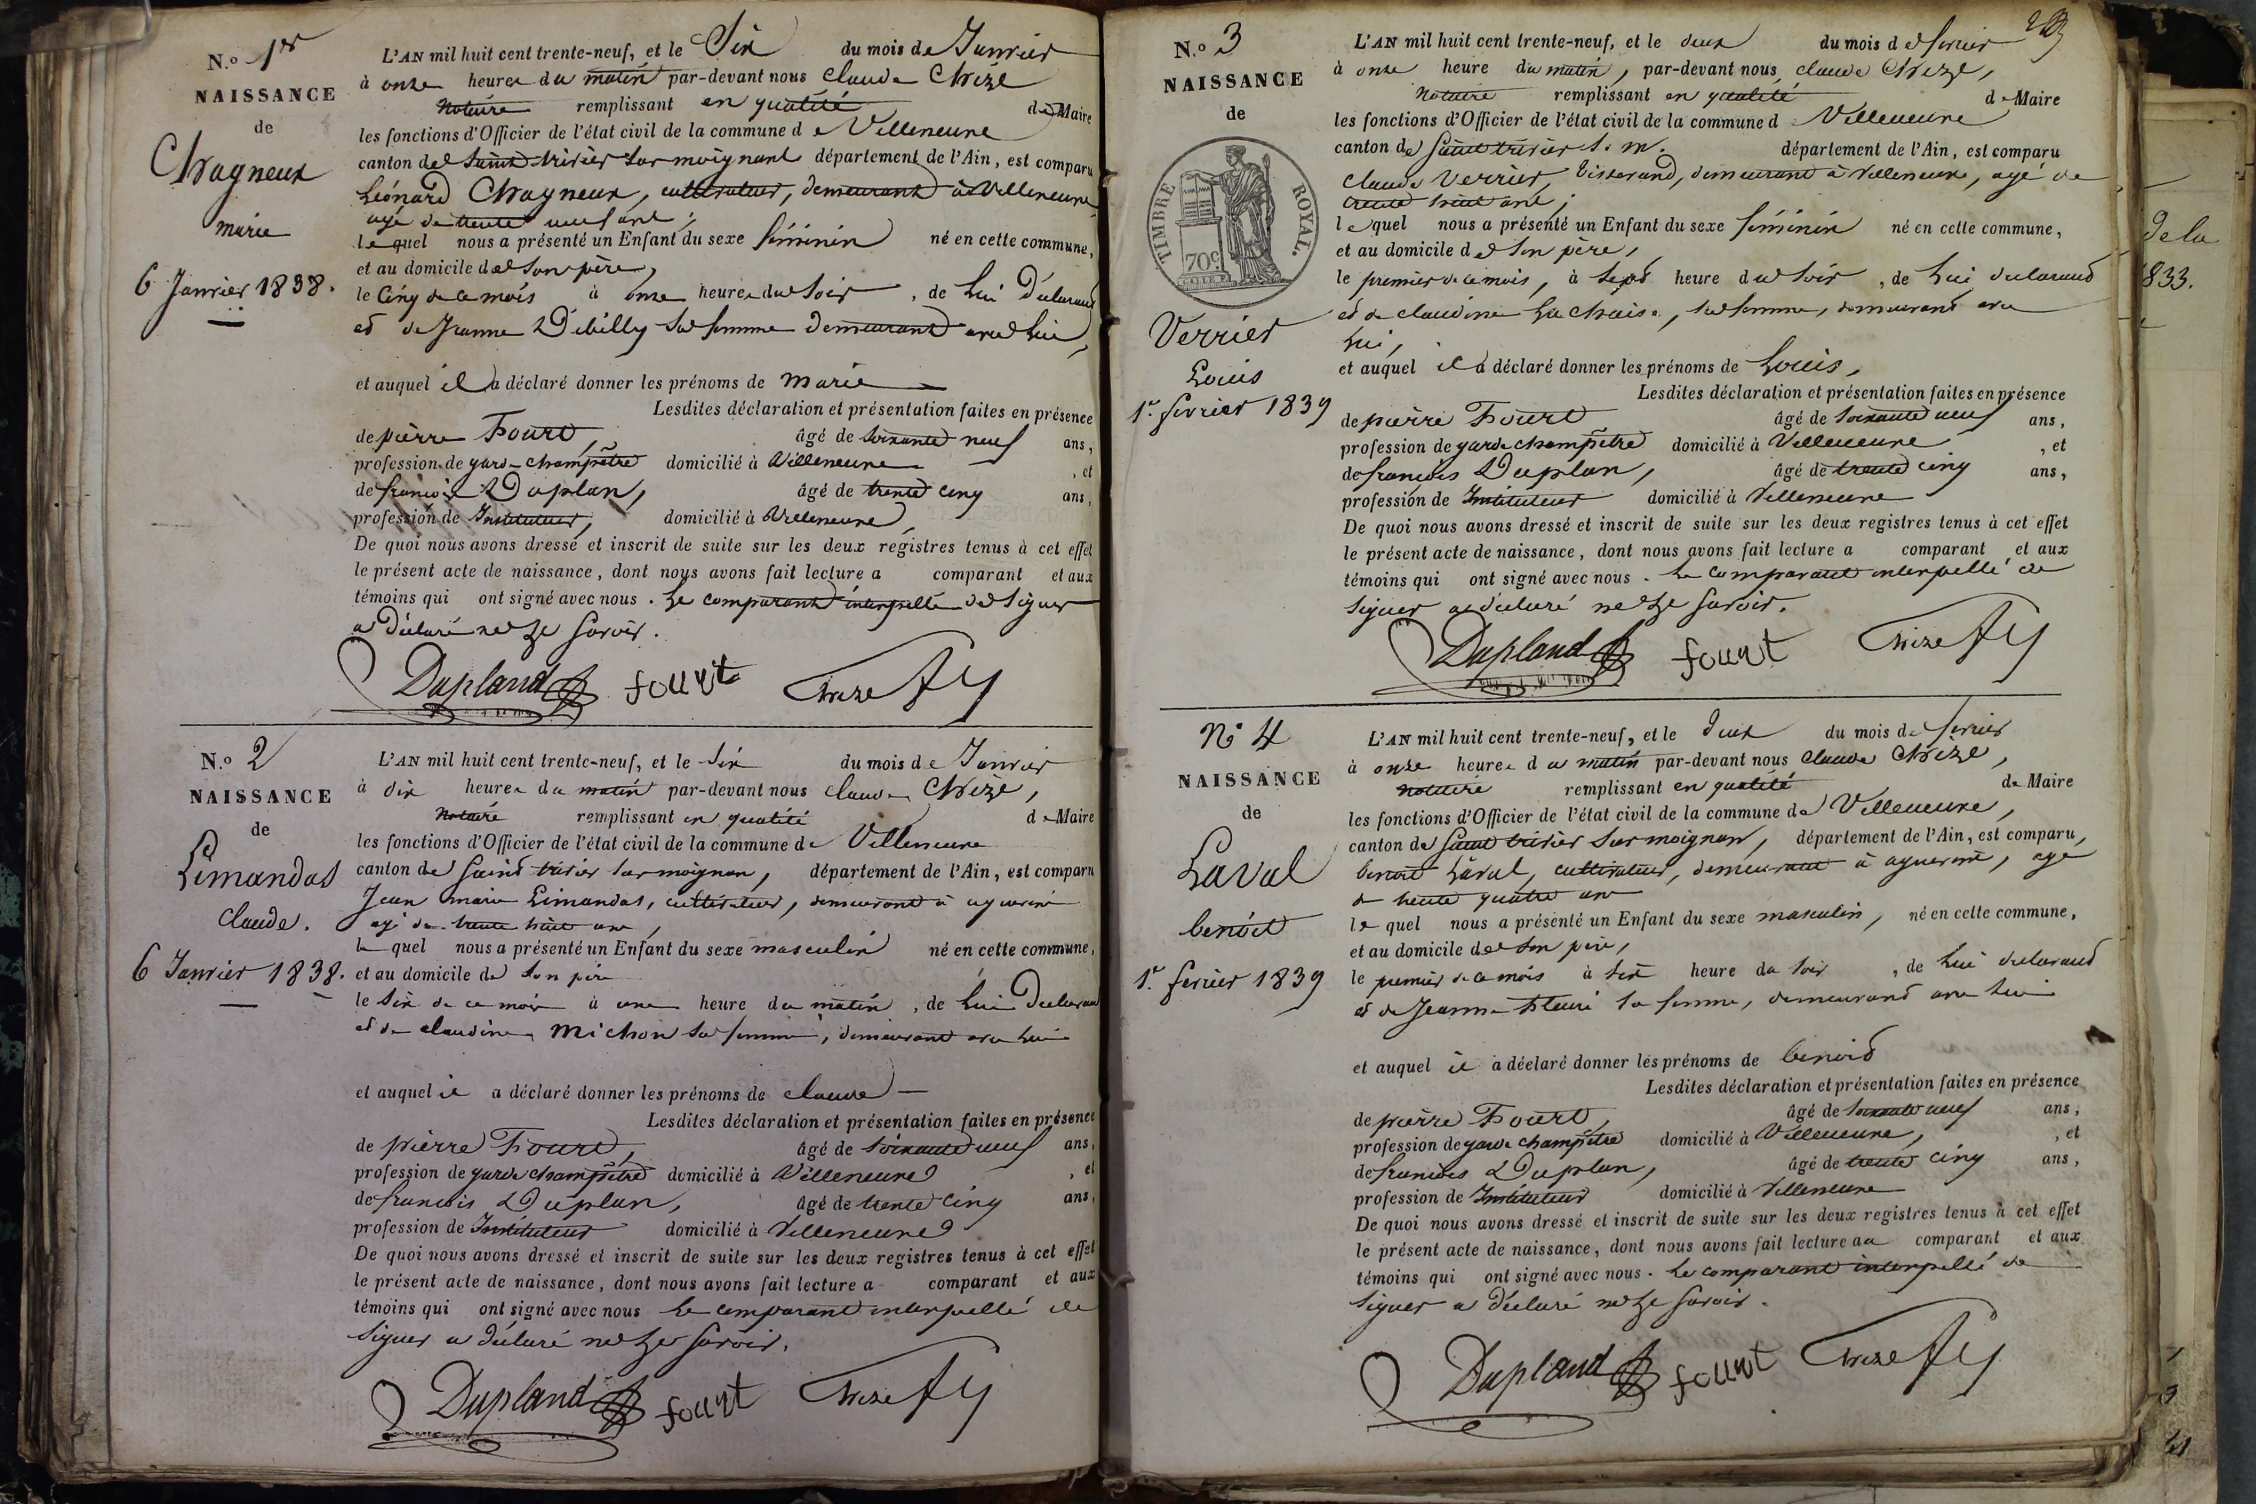 N.o 1er
NAISSANCE
de
Chagneux
marie
6 Janvier 1838.
L'AN mil huit cent trente-neuf, et le Six du mois de Janvier
à onze heures du matin par-devant nous Claude Chize
Notaire remplissant en qualité de Maire
les fonctions d'Officier de l'état civil de la commune de Villeneuve
canton de Saint trivier sur moignant département de l'Ain, est comparu
Léonard Chagneux, cultivateur, demeurant à Villeneuve
agé de trente neuf ans;
lequel nous a présenté un Enfant du sexe féminin né en cette commune,
et au domicile de son père,
le Cinq de ce mois à onze heures du soir, de lui Déclarant
et de Jeanne Debilly sa femme demeurant avec lui,
et auquel il a déclaré donner les prénoms de marie
Lesdites déclaration et présentation faites en présence
de pierre Fourt, âgé de soixante neuf ans,
profession de garde champêtre domicilié à Villeneuve, et
de françois Duplan, âgé de trente cinq ans,
profession de Instituteur, domicilié à Villeneuve,
De quoi nous avons dressé et inscrit de suite sur les deux registres tenus à cet effet
le présent acte de naissance, dont nous avons fait lecture a comparant et aux
témoins qui ont signé avec nous. Le comparant interpellé de signer
a déclaré ne le savoir.
Dupland fourt Chize
N.o 2
NAISSANCE
de
Limandas
Claude.
6 Janvier 1838.
L'AN mil huit cent trente-neuf, et le Six du mois de Janvier
à dix heures du matin par-devant nous claude Chize,
Notaire remplissant en qualité de Maire
les fonctions d'Officier de l'état civil de la commune de Villeneuve
canton de Saint trivier sur moignan, département de l'Ain, est comparu
Jean marie Limandas, cultivateur, demeurant à agnereins
agé de trente huit ans,
le quel nous a présenté un Enfant du sexe masculin né en cette commune,
et au domicile de son père
le Six de ce mois à une heure du matin, de lui Déclarant
et de claudine Michon sa femme, demeurant avec lui
et auquel il a déclaré donner les prénoms de claude
Lesdites déclaration et présentation faites en présence
de pierre Fourt, âgé de soixante neuf ans,
profession de garde champêtre domicilié à Villeneuve, et
de francois Duplan, âgé de trente cinq ans,
profession de Instituteur domicilié à Villeneuve
De quoi nous avons dressé et inscrit de suite sur les deux registres tenus à cet effet
le présent acte de naissance, dont nous avons fait lecture a comparant et aux
témoins qui ont signé avec nous Le comparant interpellé de
signer a déclaré ne le savoir.
Dupland fourt Chize
N.o 3
NAISSANCE
de
TIMBRE ROYAL.
70c
Verrier
Louis
1r. fevrier 1839
L'AN mil huit cent trente-neuf, et le deux du mois de fevrier
à onze heure du matin, par-devant nous claude Chize,
Notaire remplissant en qualité de Maire
les fonctions d'Officier de l'état civil de la commune d Villeneuve
canton de Saint trivier s. m. département de l'Ain, est comparu
Claude Verrier, Tisserand, demeurant à Villeneuve, agé de
trente huit ans;
le quel nous a présenté un Enfant du sexe féminin né en cette commune,
et au domicile de son père,
le premier de ce mois, à sept heure du soir, de lui déclarant
et de claudine La chaise, sa femme, demeurant avec
lui,
et auquel il a déclaré donner les prénoms de Louis,
Lesdites déclaration et présentation faites en présence
de pierre Fourt âgé de soixante neuf ans,
profession de garde champêtre domicilié à Villeneuve, et
de françois Duplan, âgé de trente cinq ans,
profession de Instituteur domicilié à Villeneuve
De quoi nous avons dressé et inscrit de suite sur les deux registres tenus à cet effet
le présent acte de naissance, dont nous avons fait lecture a comparant et aux
témoins qui ont signé avec nous. Le comparant interpellé de
signer a déclaré ne le savoir.
Dupland fourt Chize
No 4
NAISSANCE
de
Laval
benoit
1r. fevrier 1839
L'AN mil huit cent trente-neuf, et le Deux du mois de fevrier
à onze heures du matin par-devant nous claude Chize,
notaire remplissant en qualité de Maire
les fonctions d'Officier de l'état civil de la commune de Villeneuve,
canton de Saint trivier sur moignan, département de l'Ain, est comparu,
benoit Laval, cultivateur, demeurant à agnereins, agé
de trente quatre ans
le quel nous a présenté un Enfant du sexe masculin, né en cette commune,
et au domicile de son père,
le premier de ce mois à six heure du soir, de lui déclarant
et de Jeanne fleuri sa femme, demeurant avec lui
et auquel il a déclaré donner les prénoms de benoit
Lesdites déclaration et présentation faites en présence
de pierre Fourt, âgé de soixante neuf ans,
profession de garde champêtre domicilié à Villeneuve, et
de francois Duplan, âgé de trente cinq ans,
profession de Instituteur domicilié à Villeneuve
De quoi nous avons dressé et inscrit de suite sur les deux registres tenus à cet effet
le présent acte de naissance, dont nous avons fait lecture au comparant et aux
témoins qui ont signé avec nous. Le comparant interpellé de
signer a déclaré ne le savoir.
Dupland fourt Chize
de la
1833.